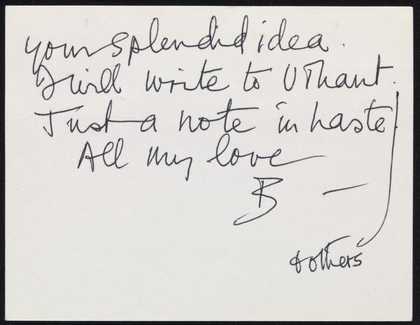 your splendid idea.
I will write to UThant.
Just a note in haste
All my love
B —
& others